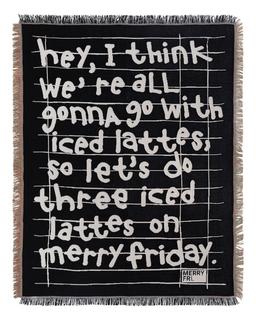 hey, I think
we're all
gonnA go with
iced lattes,
so let's do
three iced
lattes on
merry friday.
MERRY
FRI.